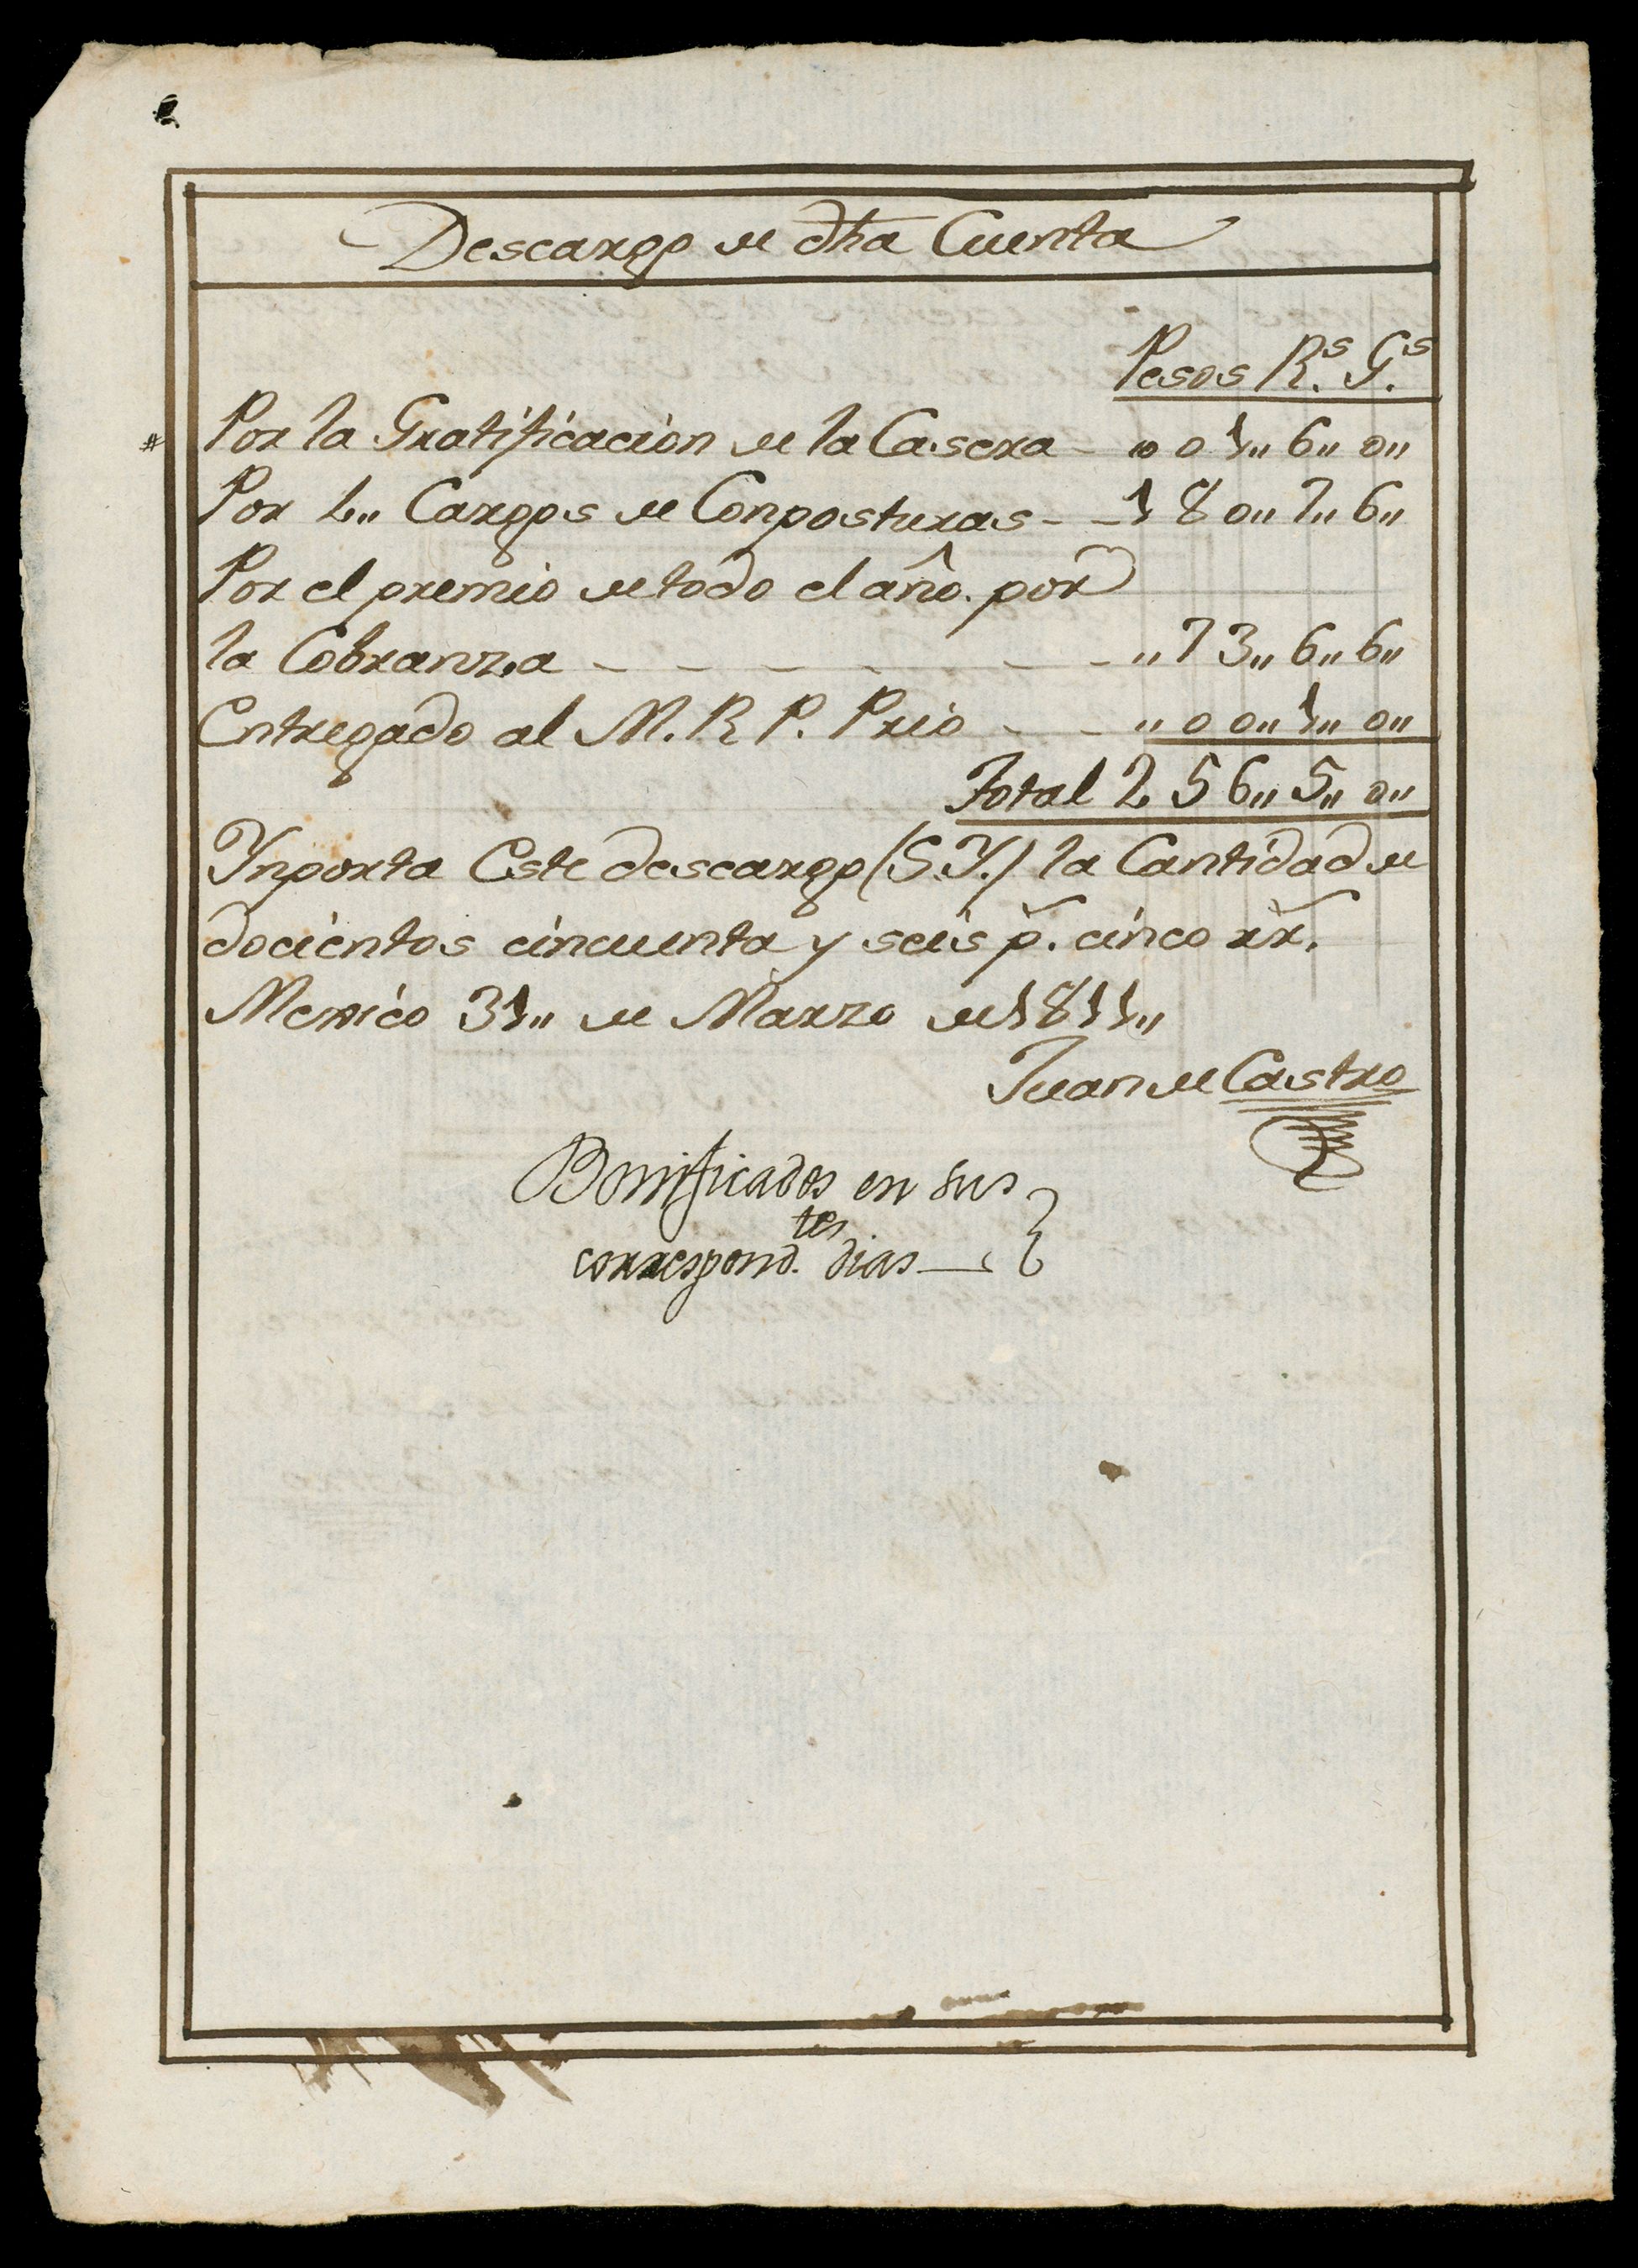 Descargo de dha Cuenta
Pesos Rs. Gs.
# Por la Gratificacion de la Casera - 001,, 6,, 0,,
Por 2,, Cargos de Conposturas - - 180,, 7,, 6,,
Por el premio de todo el año. por
la Cobranza - - - - - - - ,,73,, 6,, 6,,
Entregado al M. R P. Prio - - ,,00,, 1,, 0,,
Total 256,, 5,, 0,,
Ynporta Este descargo (S.Y.) la Cantidad de
docientos cincuenta y seis p. cinco rr.
Mexico 31,, de Marzo de 1811,,
Juan de Castro
Bonificados en sus
correspond.tes dias